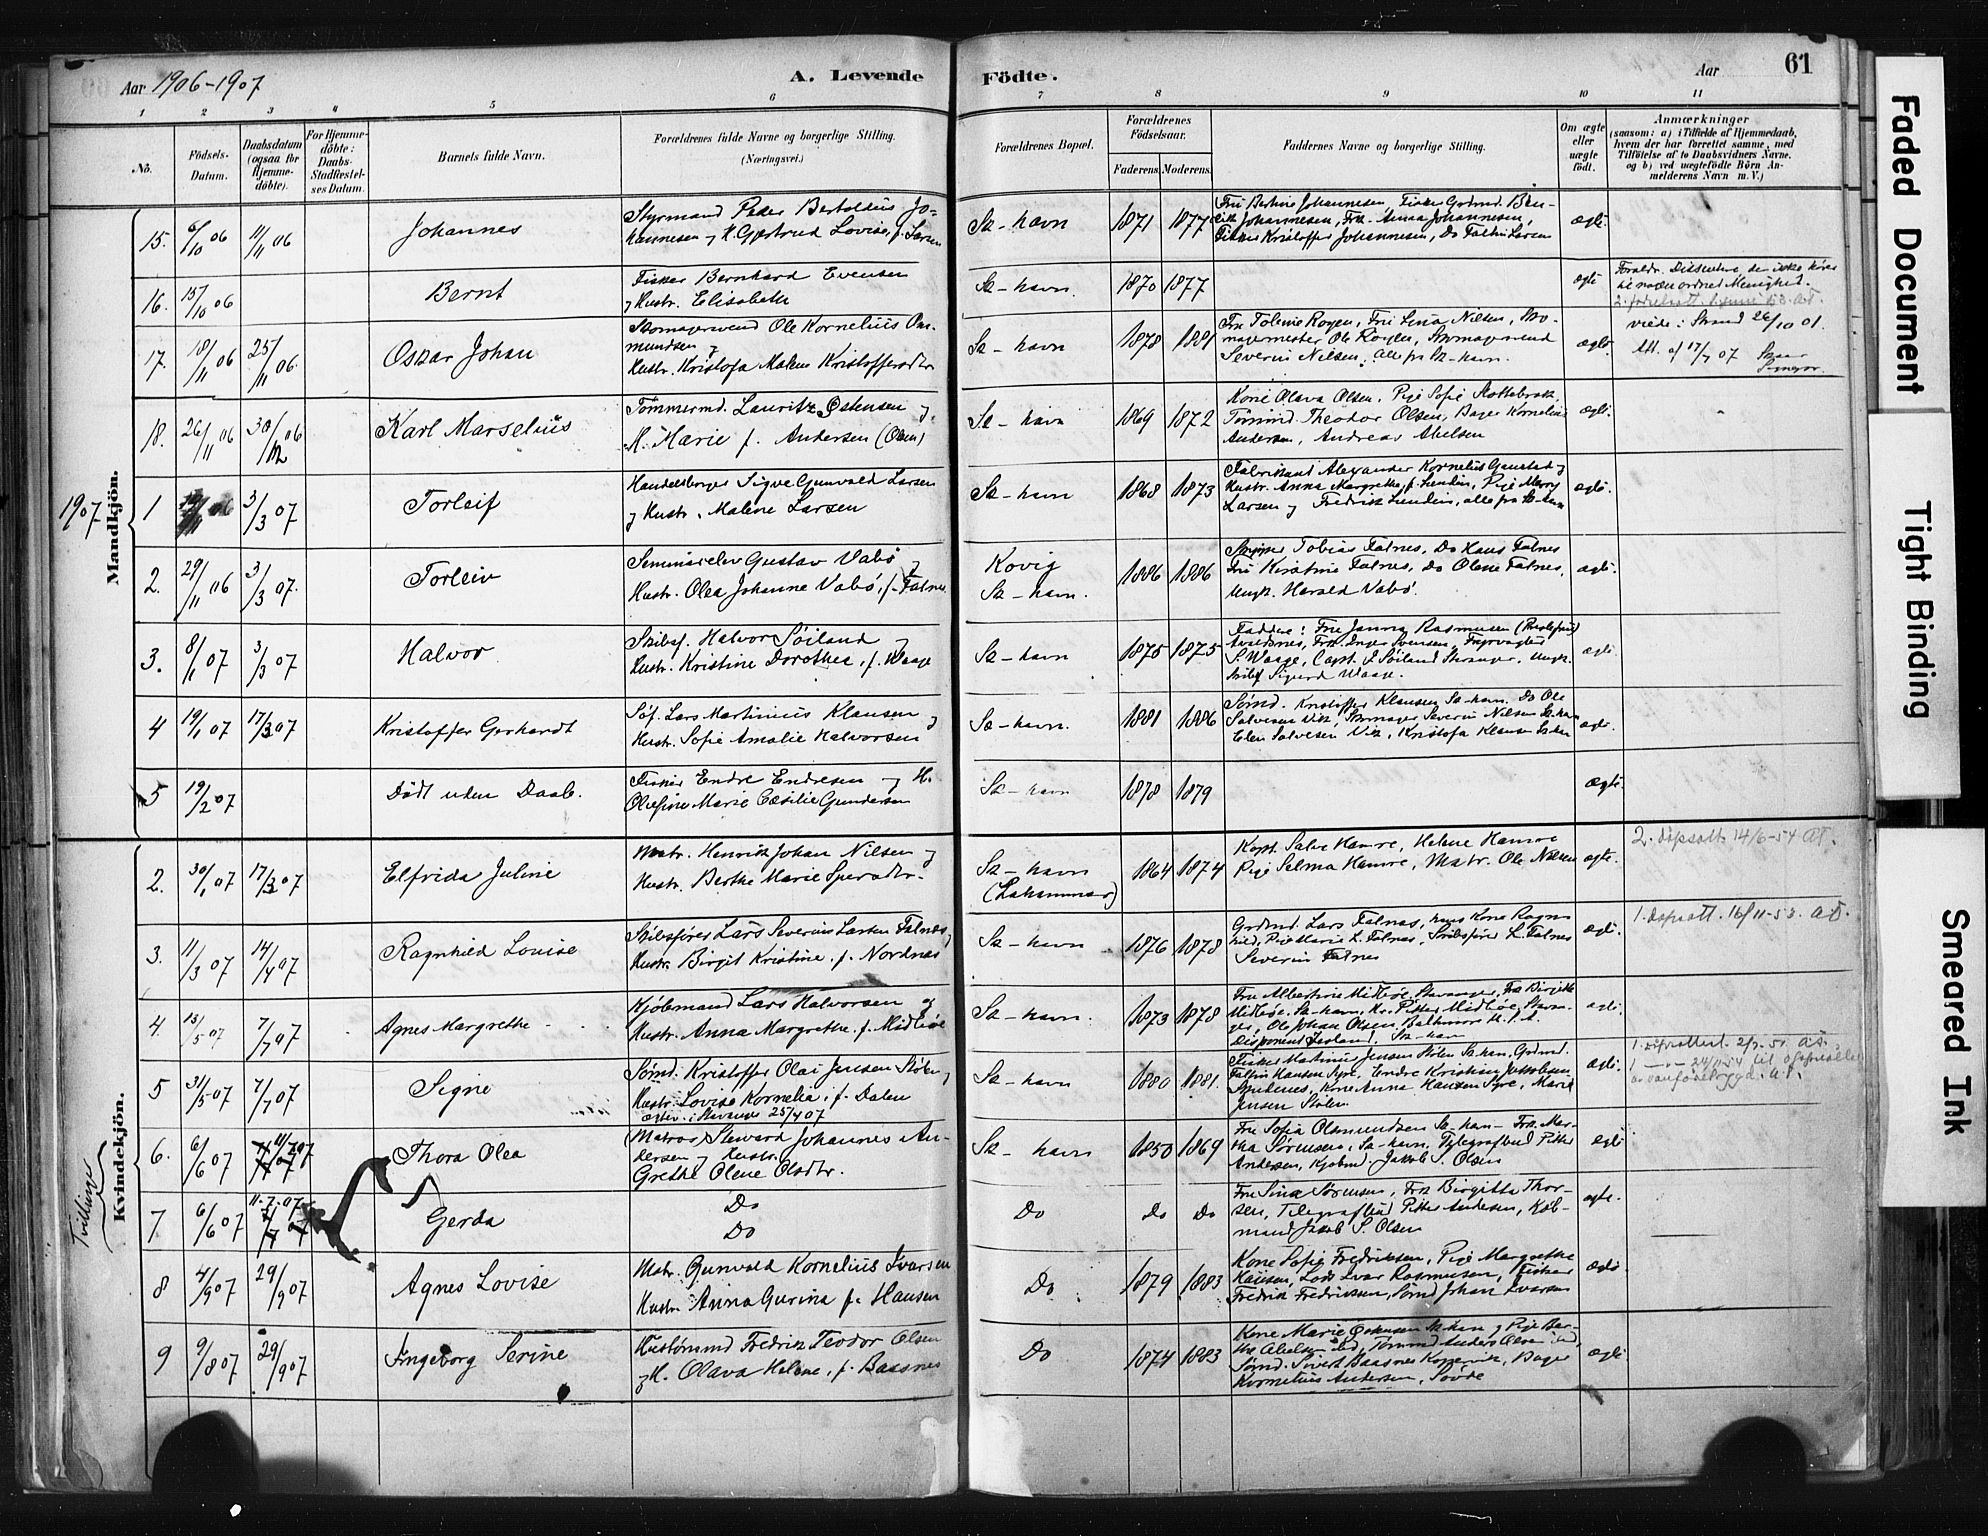 Aar 1906-1907
A. Levende Födte.
Aar
61
1 2 3 4 5 6 7 8 9 10 11
No.
Födsels-Datum.
Daabsdatum (ogsaa for Hjemme-döbte).
For Hjemme-döbte: Daabs-Stadfæstel-ses Datum.
Barnets fulde Navn.
Forældrenes fulde Navne og borgerlige Stilling.
(Næringsvei.)
Forældrenes Bopæl.
Forældrenes Födselsaar.
Faderens. Moderens.
Faddernes Navne og borgerlige Stilling.
Om ægte eller uægte födt.
Anmærkninger
(saasom: a) i Tilfælde af Hjemmedaab, hvem der har forrettet samme, med Tilföielse af to Daabsvidners Navne, og b) ved uægtefödte Börn An-melderens Navn m. V.)
Mandkjön.
15. 6/10 06 11/11 06 Johannes
Styrmand Peder Bertoldius Jo-
hannesen og H. Gjertrud Lovise, f. Larsen
Sk-havn 1871 1877
Fru Bertine Johannesen, Fisker Gudmd. Ben-
Johannesen, Frk. Anna Johannesen,
Fisker Kristoffer Johannesen, Do Larsen
ægte.
16. 15/10 06 Bernt
Fisker Bernhard Evensen
og Hustr. Elisabeth
Sk-havn. 1870 1877 ægte
Foreldr. Dissentere, der ikke hører
til nogen ordnet Menighed.
17. 18/11 06 25/11 06. Oskar Johan
Skomagersvend Ole Kornelius
mundsen og
Hustr. Kristofa Malene Kristoffersdtr.
Sk-havn 1878 1881
Fru Tolene Røgen, Fru Lina Nilsen, Sko-
magermester Ole Røglen, Skomagersvend
Severin Nilsen, alle fra Sk-havn.
ægte.
viede i Strand 26/10 01.
Att. af 17/7 07
18. 26/11 06 30/12 06 Karl Marselius
Tömmermd. Lauritz Østensen og
H. Marie f. Andersen (Olsen)
Sk-havn 1869 1872
Kone Olava Olsen, Pige Sofie
Tömmd Theodor Olsen, Bager Kornelius
Andersen, Andreas Abelsen
ægte.
1907.
1 3/3 07 Torleif
Handelsborger Sigve Gunvald Larsen
og Hustr. Malene Larsen
Sk-havn 1868 1873
Fabrikant Alexander Kornelius Gaustad og
Hustr. Anna Margrethe, f. Lundin, Pige Merry
Larsen og Fredrik Lundin, alle fra Sk-havn
ægte.
2. 29/11 06 3/3 07. Torleiv
Seminarelev Gustav Vabø og
Hustr. Olea Johanne Vabø, f. Falnes.
Kovig
Sk-havn. 1886 1886
Skipper Tobias Falnes, Do Hans Falnes
Fru Kristine Falnes, Do Olene Falnes,
Ungk. Harald Vabø.
ægte.
3. 8/1 07 3/3 07 Halvor
Skibsf. Halvor Søiland og
Hustr. Kristine Dorothea, f. Waage
Sk-havn 1875 1875
Faddere: Fru Janna Rasmusen
Avaldsnes, Frk. Inger Svensen, Fyrvogter
S. Waage, Capt. J. Søiland Stavanger, Ungk.
Skibsf Sigurd Waage.
ægte.
4 19/1 07 17/3 07 Kristoffer Gerhardt
Søf. Lars Martinius Klausen og
Hustr. Sofie Amalie Halvorsen
Sk-havn. 1881 1886
Sømd. Kristoffer Klausen Sk-havn, Do Ole
Salvesen Vik, Skomager Severin Nilsen Sk-havn
Elen Salvesen Vik, Kristofa Klausen Sk-havn
ægte.
5 19/2 07 Dødt uden Daab.
Fisker Endre Endresen og H.
Olefine Marie Cæsilie Gundersen
Sk-havn 1878 1879 ægte.
Kvindekjön.
2. 30/1 07 17/3 07 Elfrida Juline
Matr. Henrik Johan Nilsen og
Hustr. Berthe Marie
Sk-havn
(Laksammar) 1864 1874
Kapt. Salve Hamre, Helene Hamre
Pige Selma Hamre, Matr. Ole Nilsen
ægte.
2. døpsatt. 14/6-54 AT.
3. 11/3 07 14/4 07 Ragnhild Louise
Skibsfører Lars Severin Larsen Falnes og
Hustr. Birgit Kristine f. Nordnes
Sk-havn 1876 1878
Grdmd. Lars Falnes, hans Kone Ragn-
hild, Pige Marie L. Falnes, Skibsfører L. Falnes
Severin Falnes
ægte.
1. døpsatt. 16/11-53. AT.
4. 13/5 07 7/7 07 Agnes Margrethe
Hjølemand Lars Halvorsen og
Hustr. Anna Margrethe f. Midbøe
Sk-havn. 1873 1878
Fru Albertine Midbøe, Stavanger, Frk. Birgitte
Midbøe, Sk-havn, Hr. Peter Midbøe, Stavan-
ger, Ole Johan Olsen, Baltimore
Disponent Sk-havn
ægte.
5 31/5 07 7/7 07 Signe
Sømd. Kristoffer Olai Jensen Stølen og
Hustr. Lovise Kornelia, f. Dalen
i Stavanger 25/4 07
Sk-havn 1880 1881.
Fisker Martinus Jensen Stølen Sk-havn, Grdmd.
Hansen Syre, Endre Kristian Jakobsen
Kone Anna Hansen Syre, Marie
Jensen Stølen
ægte.
6. 6/6 07 11/7 07 Thora Olea
Matros Steward Johannes An-
dersen og Hustr.
Grethe Olene Olsdtr.
Sk-havn 1850 1869
Fru Sofia Olsmundsen Sk-havn. Frk. Mar-
tha Sørensen, Sk-havn, Telegrafbud Peter
Andersen, Kjøbmd. Jakob S. Olsen
ægte
Tvillinger
7 6/6 07 11-7-07 Gerda
Do
Do
Do Do Do
Fru Lina Sørensen, Frk Birgitte Thor-
sen, Telegrafbud Peter Andersen, Køb-
mand Jakob S. Olsen
ægte.
8 4/9 07 29/9 07 Agnes Lovise
Matr. Gunvald Kornelius Ivarsen
Hustr. Anna Gurina f. Hansen
Do 1879 1883
Kone Sofie Fredriksen, Pige Margrethe
Hansen, Lods Ivar Rasmusen, Fisker
Fredrik Fredriksen, Sømd Johan Ivarsen
ægte
9 9/8 07 29/9 07 Ingeborg Serine
Hustømmd Fredrik Teodor Olsen
og H. Olava Helene, f. Baasnes
Do 1874 1883
Kone Marie Østensen Sk-havn og Pige Ber-
the Abelsen ibd, Tømmd Anders Olsen ibd,
Sømd. Sivert Baasnes Kopervik, Bager
Kornelius Andersen, Sovde
ægte
Faded Document
Tight Binding
Smeared Ink